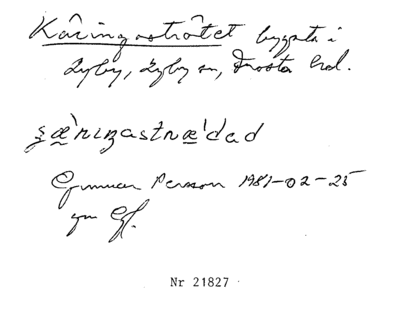 Käringastråtet bygata i
Lyby, Lyby sn, Frosta hd.
ʂæ̀rıŋastræ'dad
Gunnar Persson 1981-02-25
gm Gf.
Nr 21827